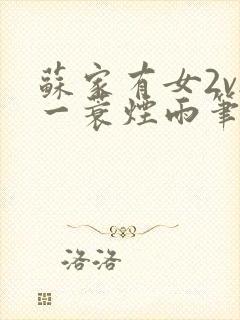 蘇家有女2v
一蓑煙雨筆
洛洛